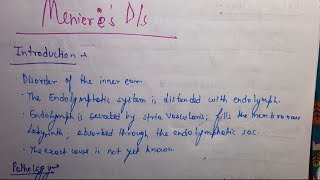 Meniere's D/s
Introduction →
· Disorder of the inner ear.
· The Endolymphatic system is distended with endolymph.
· Endolymph is secreted by stria vascularis; fills the membranous
labyrinth; absorbed through the endolymphatic sac.
· The exact cause is not yet known.
Pathology →